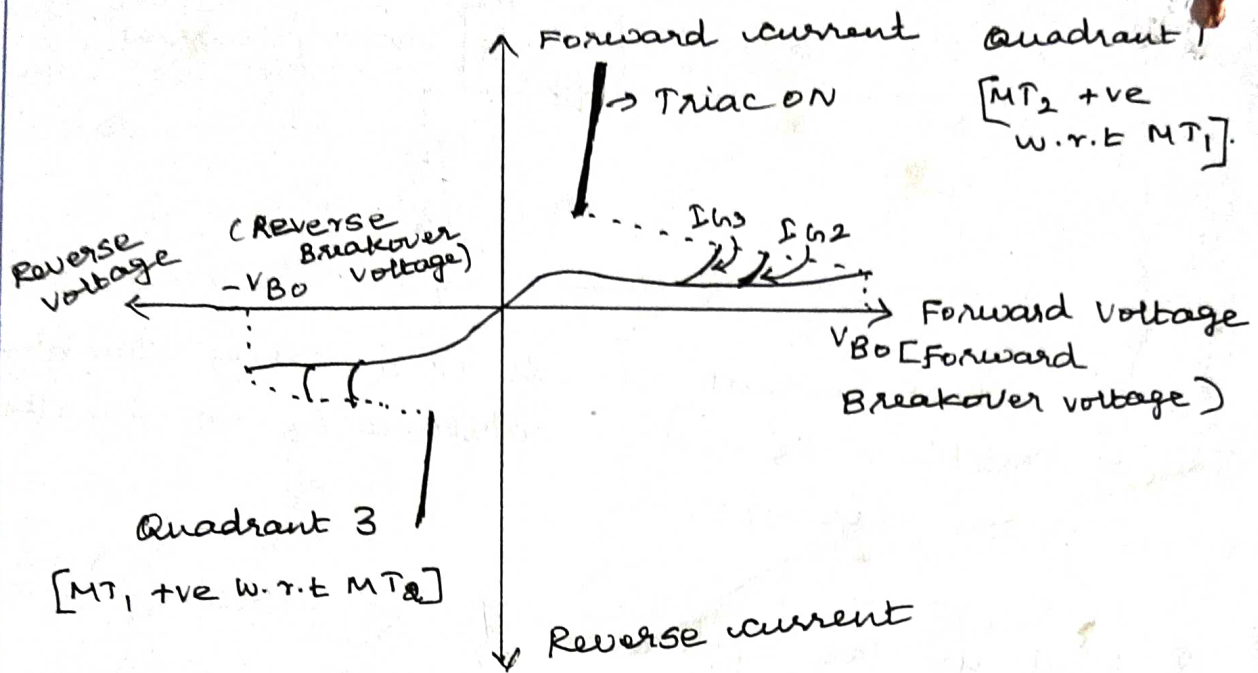 Forward current
Quadrant 1
[MT2 +ve
w.r.t MT1].
→ Triac ON
IG3
IG2
(Reverse
Breakover
voltage)
Reverse
voltage
-VBO
Forward Voltage
VBO [Forward
Breakover voltage)
Quadrant 3
[MT1 +ve w.r.t MT2]
Reverse current